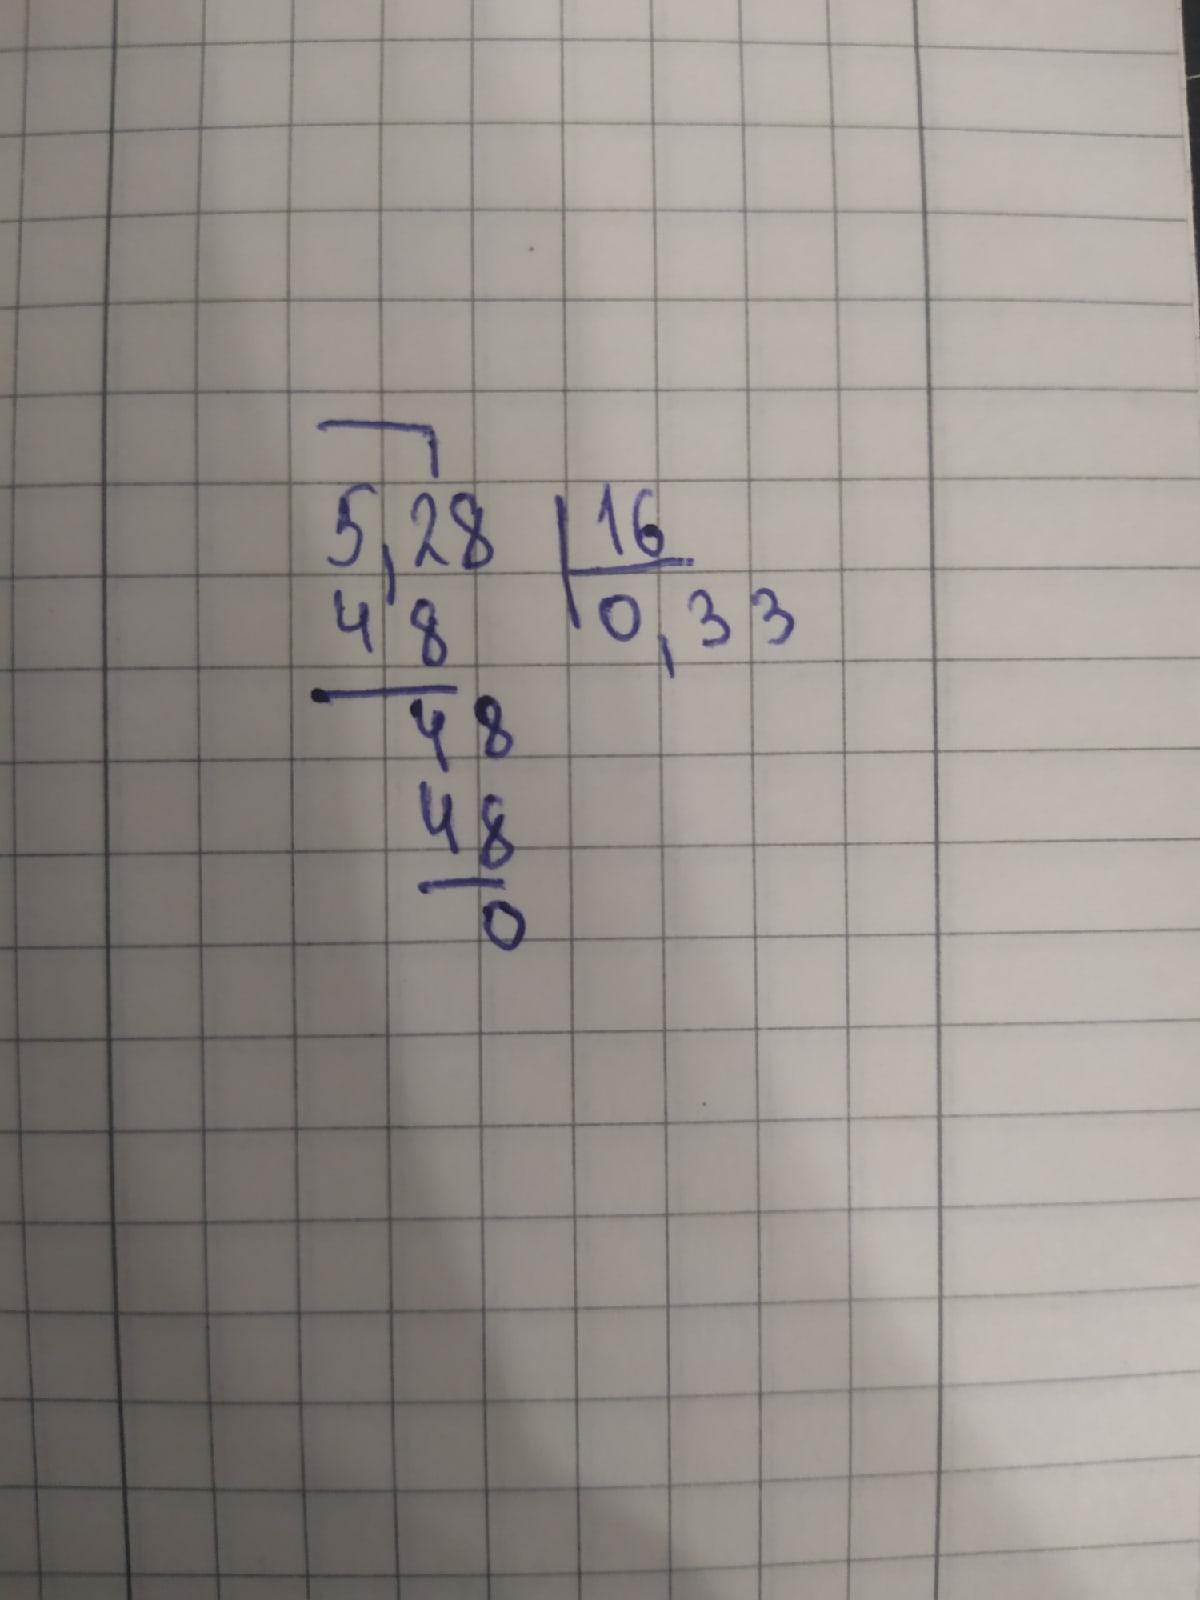 5,28 16
48 0,33
48
48
0